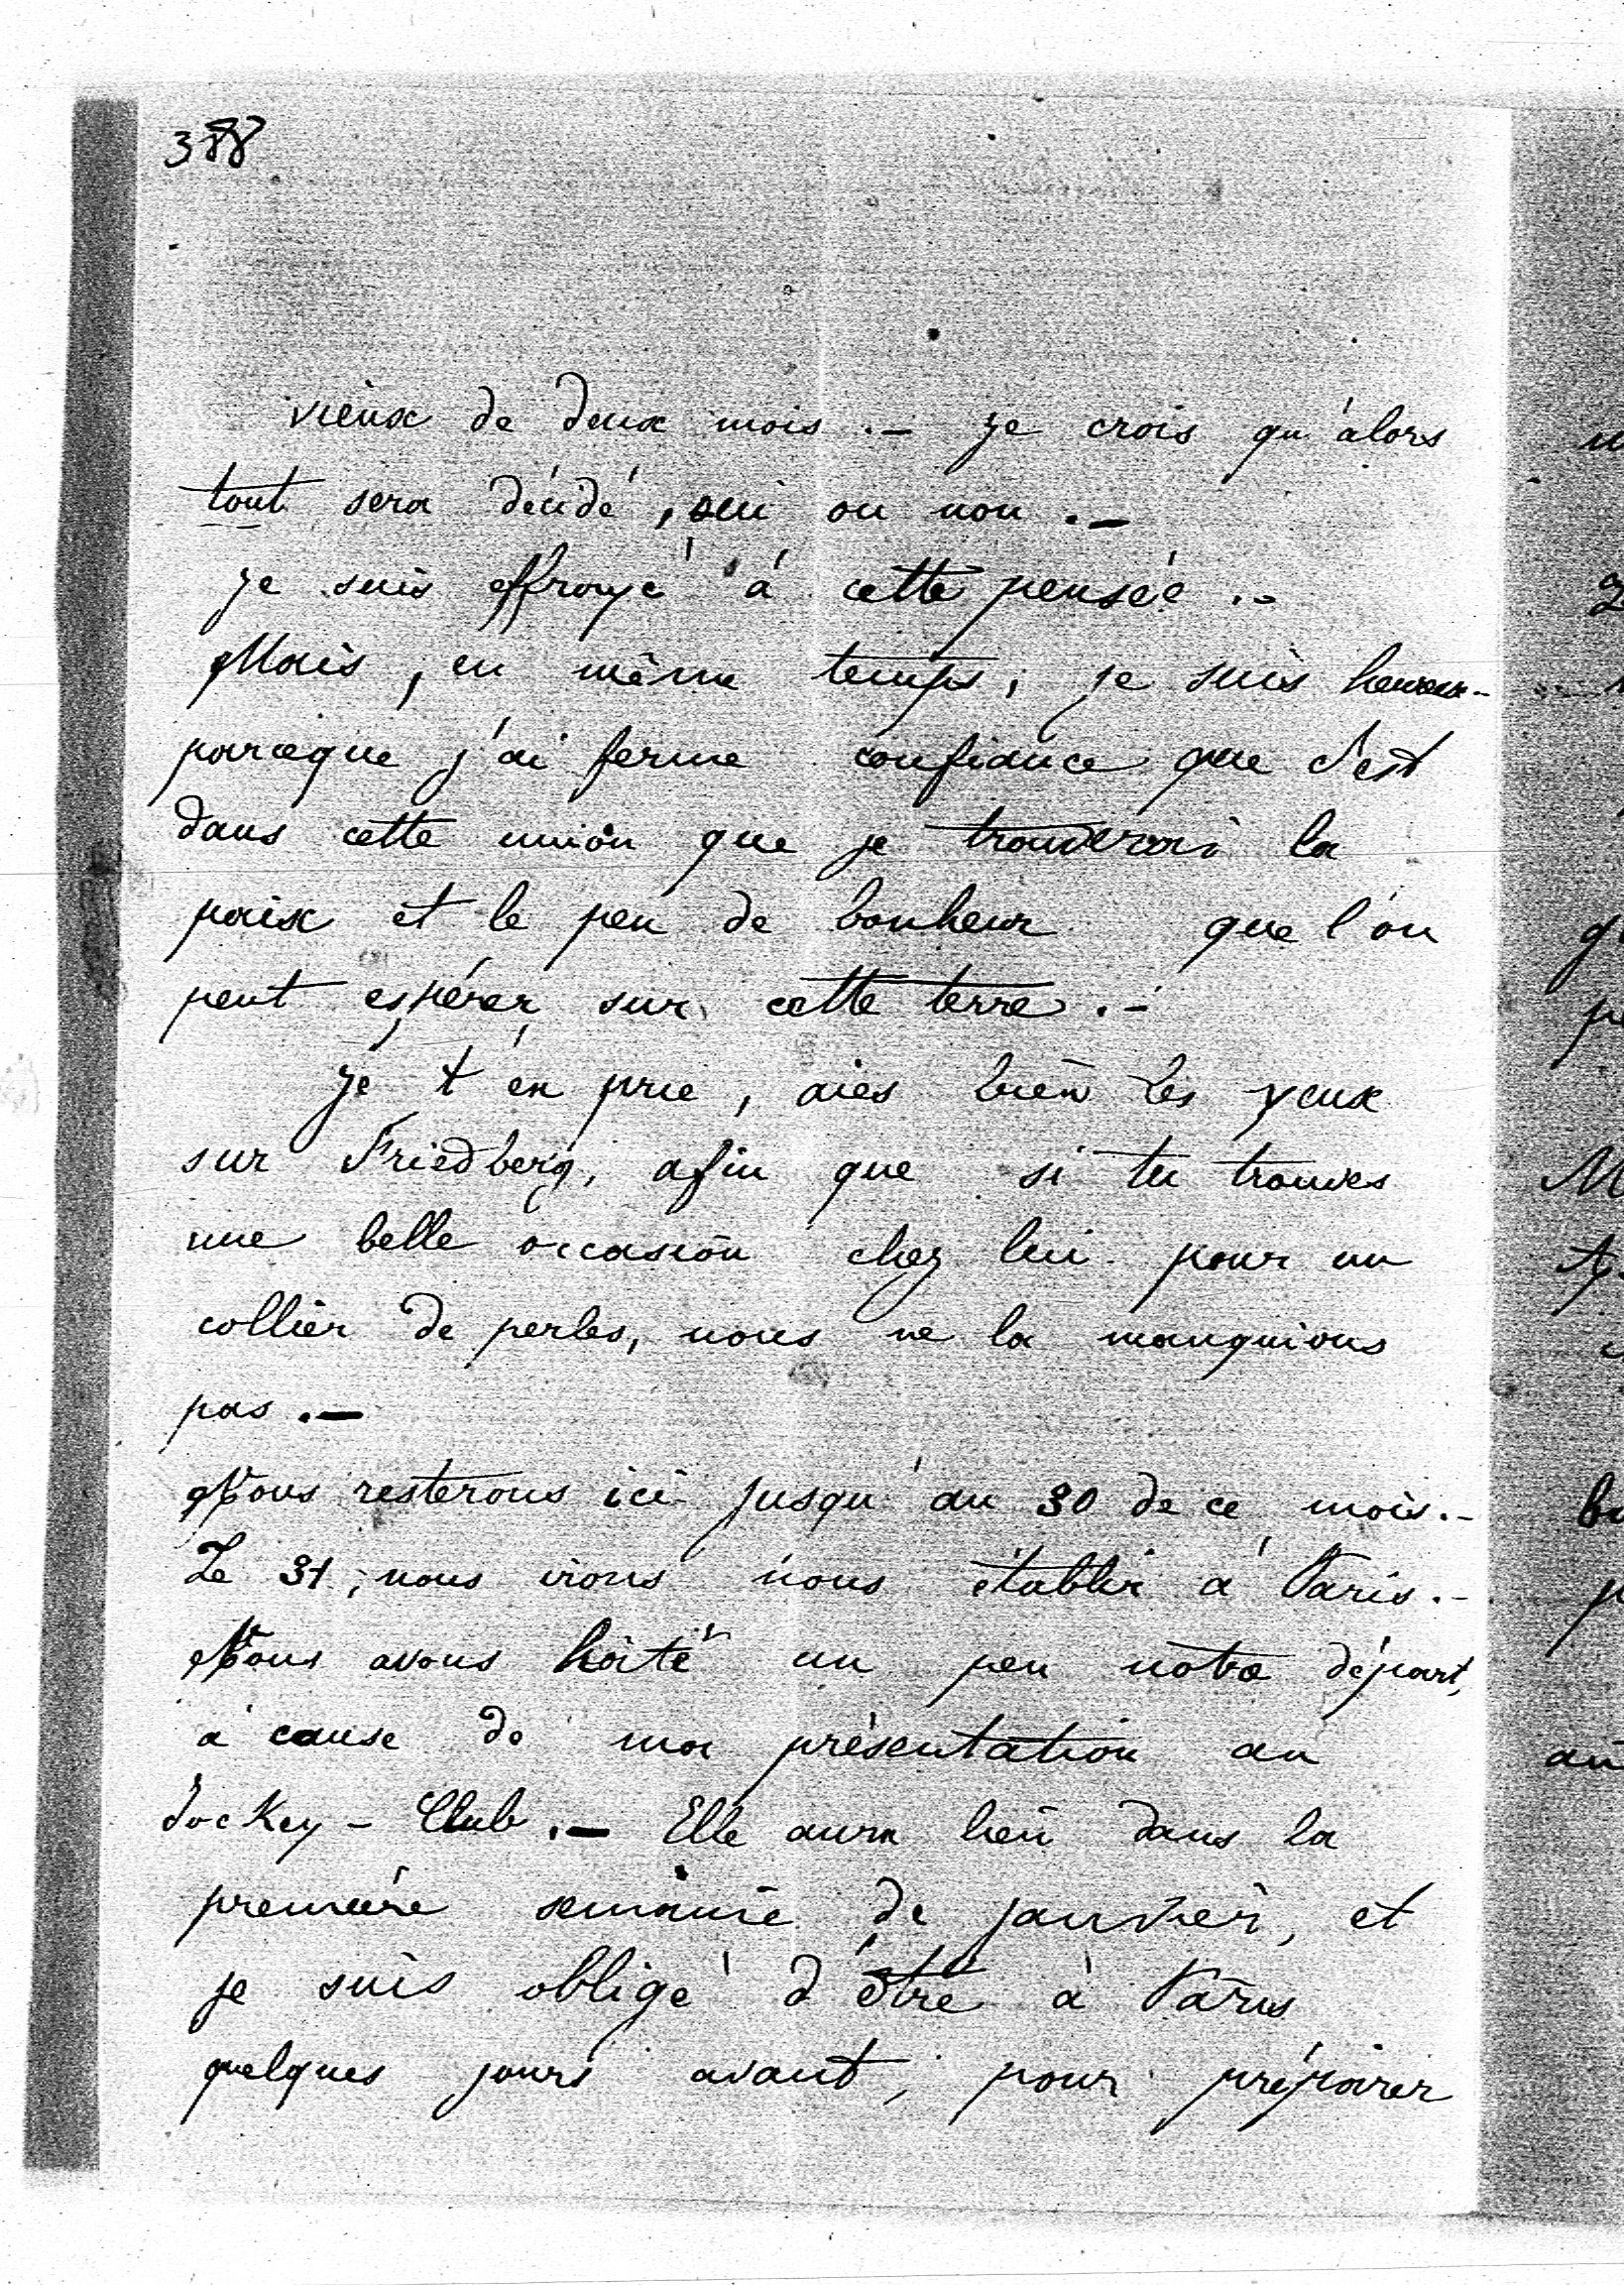 388
vieux de deux mois .- Je crois qu'alors
tout sera décidé, oui ou non .-
Je suis effrayé à cette pensée .-
Mais, en même temps, je suis heureux-
parceque j'ai ferme confiance que c'est
dans cette union que je trouverai la
paix et le peu de bonheur que l'on
peut espérer sur cette terre .-
Je t'en prie, aies bien les yeux
sur Friedberg, afin que si tu trouves
une belle occasion chez lui pour un
collier de perles, nous ne la manquions
pas .-
Nous resterons ici jusqu'au 30 de ce mois .-
Le 31, nous irons nous établir à Paris .-
Nous avons hâté un peu notre départ,
à cause de ma présentation au
Jockey-Club .- Elle aura lieu dans la
première semaine de janvier, et
je suis obligé d'être à Paris
quelques jours avant, pour préparer